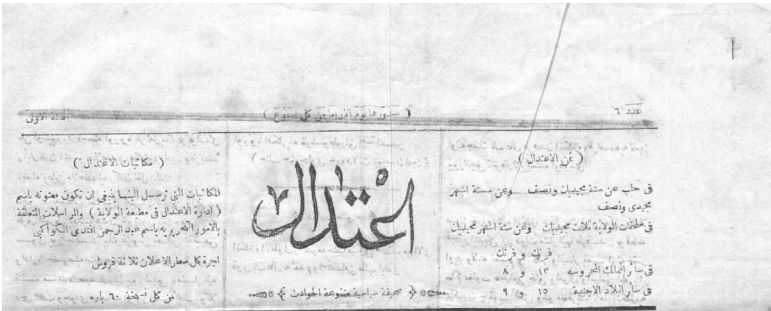 عدد ٦
( صدورها يوم الاربعا من كل اسبوع )
السنة الاولى
( ثمن الاعتدال )
فى حلب عن سنة مجيديات ونصف وعن ستة اشهر
مجيدى ونصف
فى ملحقات الولاية ثلاث مجيديات وعن ستة اشهر مجيديان
فرنك و فرنك
فى سائر الممالك المحروسه ١٣ و ٨
فى سائر البلاد الاجنبية ١٥ و ٩
اعتدال
صحيفة سياسية متنوعة الحوادث
( مكاتبات الاعتدال )
المكاتبات التى ترسل الينا ينبغى ان تكون معنونه باسم
( ادارة الاعتدال فى مطبعة الولاية ) والمراسلات المتعلقة
بالامور التحريريه باسم عبد الرحمن افندى الكواكبى
اجرة كل سطر الاعلان ثلاثة قروش
ثمن كل نسخة ٦٠ باره